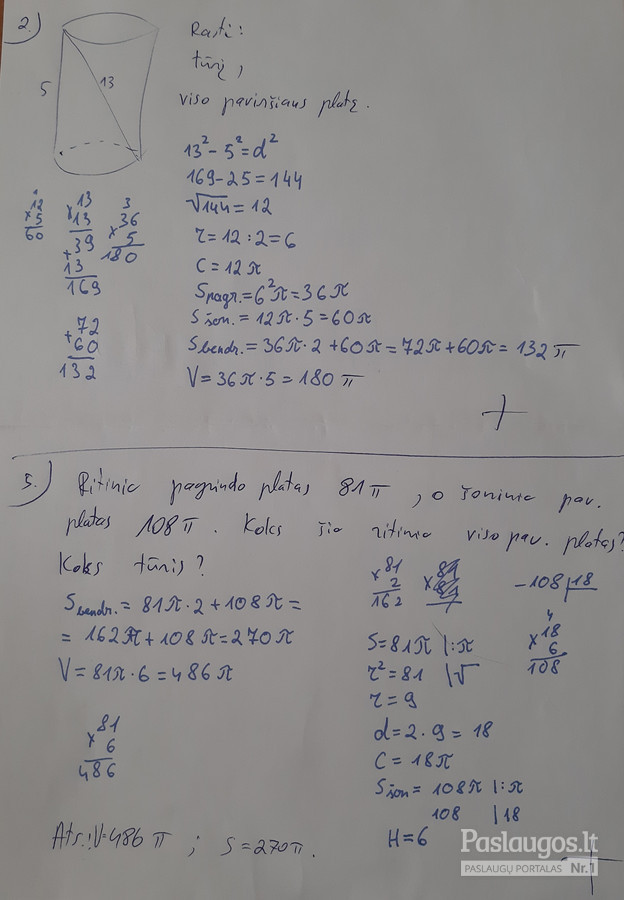 2.)
Rasti:
tūrį,
viso paviršiaus plotą.
5
13
13² - 5² = d²
169 - 25 = 144
√144 = 12
r = 12 : 2 = 6
C = 12π
Spagr. = 6²π = 36π
Sšon. = 12π · 5 = 60π
Sbendr. = 36π · 2 + 60π = 72π + 60π = 132π
V = 36π · 5 = 180π
1
12
× 5
60
13
× 13
39
+ 13
169
3
36
× 5
180
72
+ 60
132
+
3.) Ritinio pagrindo plotas 81π, o šoninio pav.
plotas 108π. Koks šio ritinio viso pav. plotas?
Koks tūris?
Sbendr. = 81π · 2 + 108π =
= 162π + 108π = 270π
V = 81π · 6 = 486π
81
× 6
486
81
× 2
162
- 108 | 18
4
18
× 6
108
S = 81π |:π
r² = 81 |√
r = 9
d = 2 · 9 = 18
C = 18π
Sšon = 108π |:π
108 | 18
H = 6
Ats.: V = 486π ; S = 270π.
+
Paslaugos.lt
PASLAUGŲ PORTALAS Nr.1